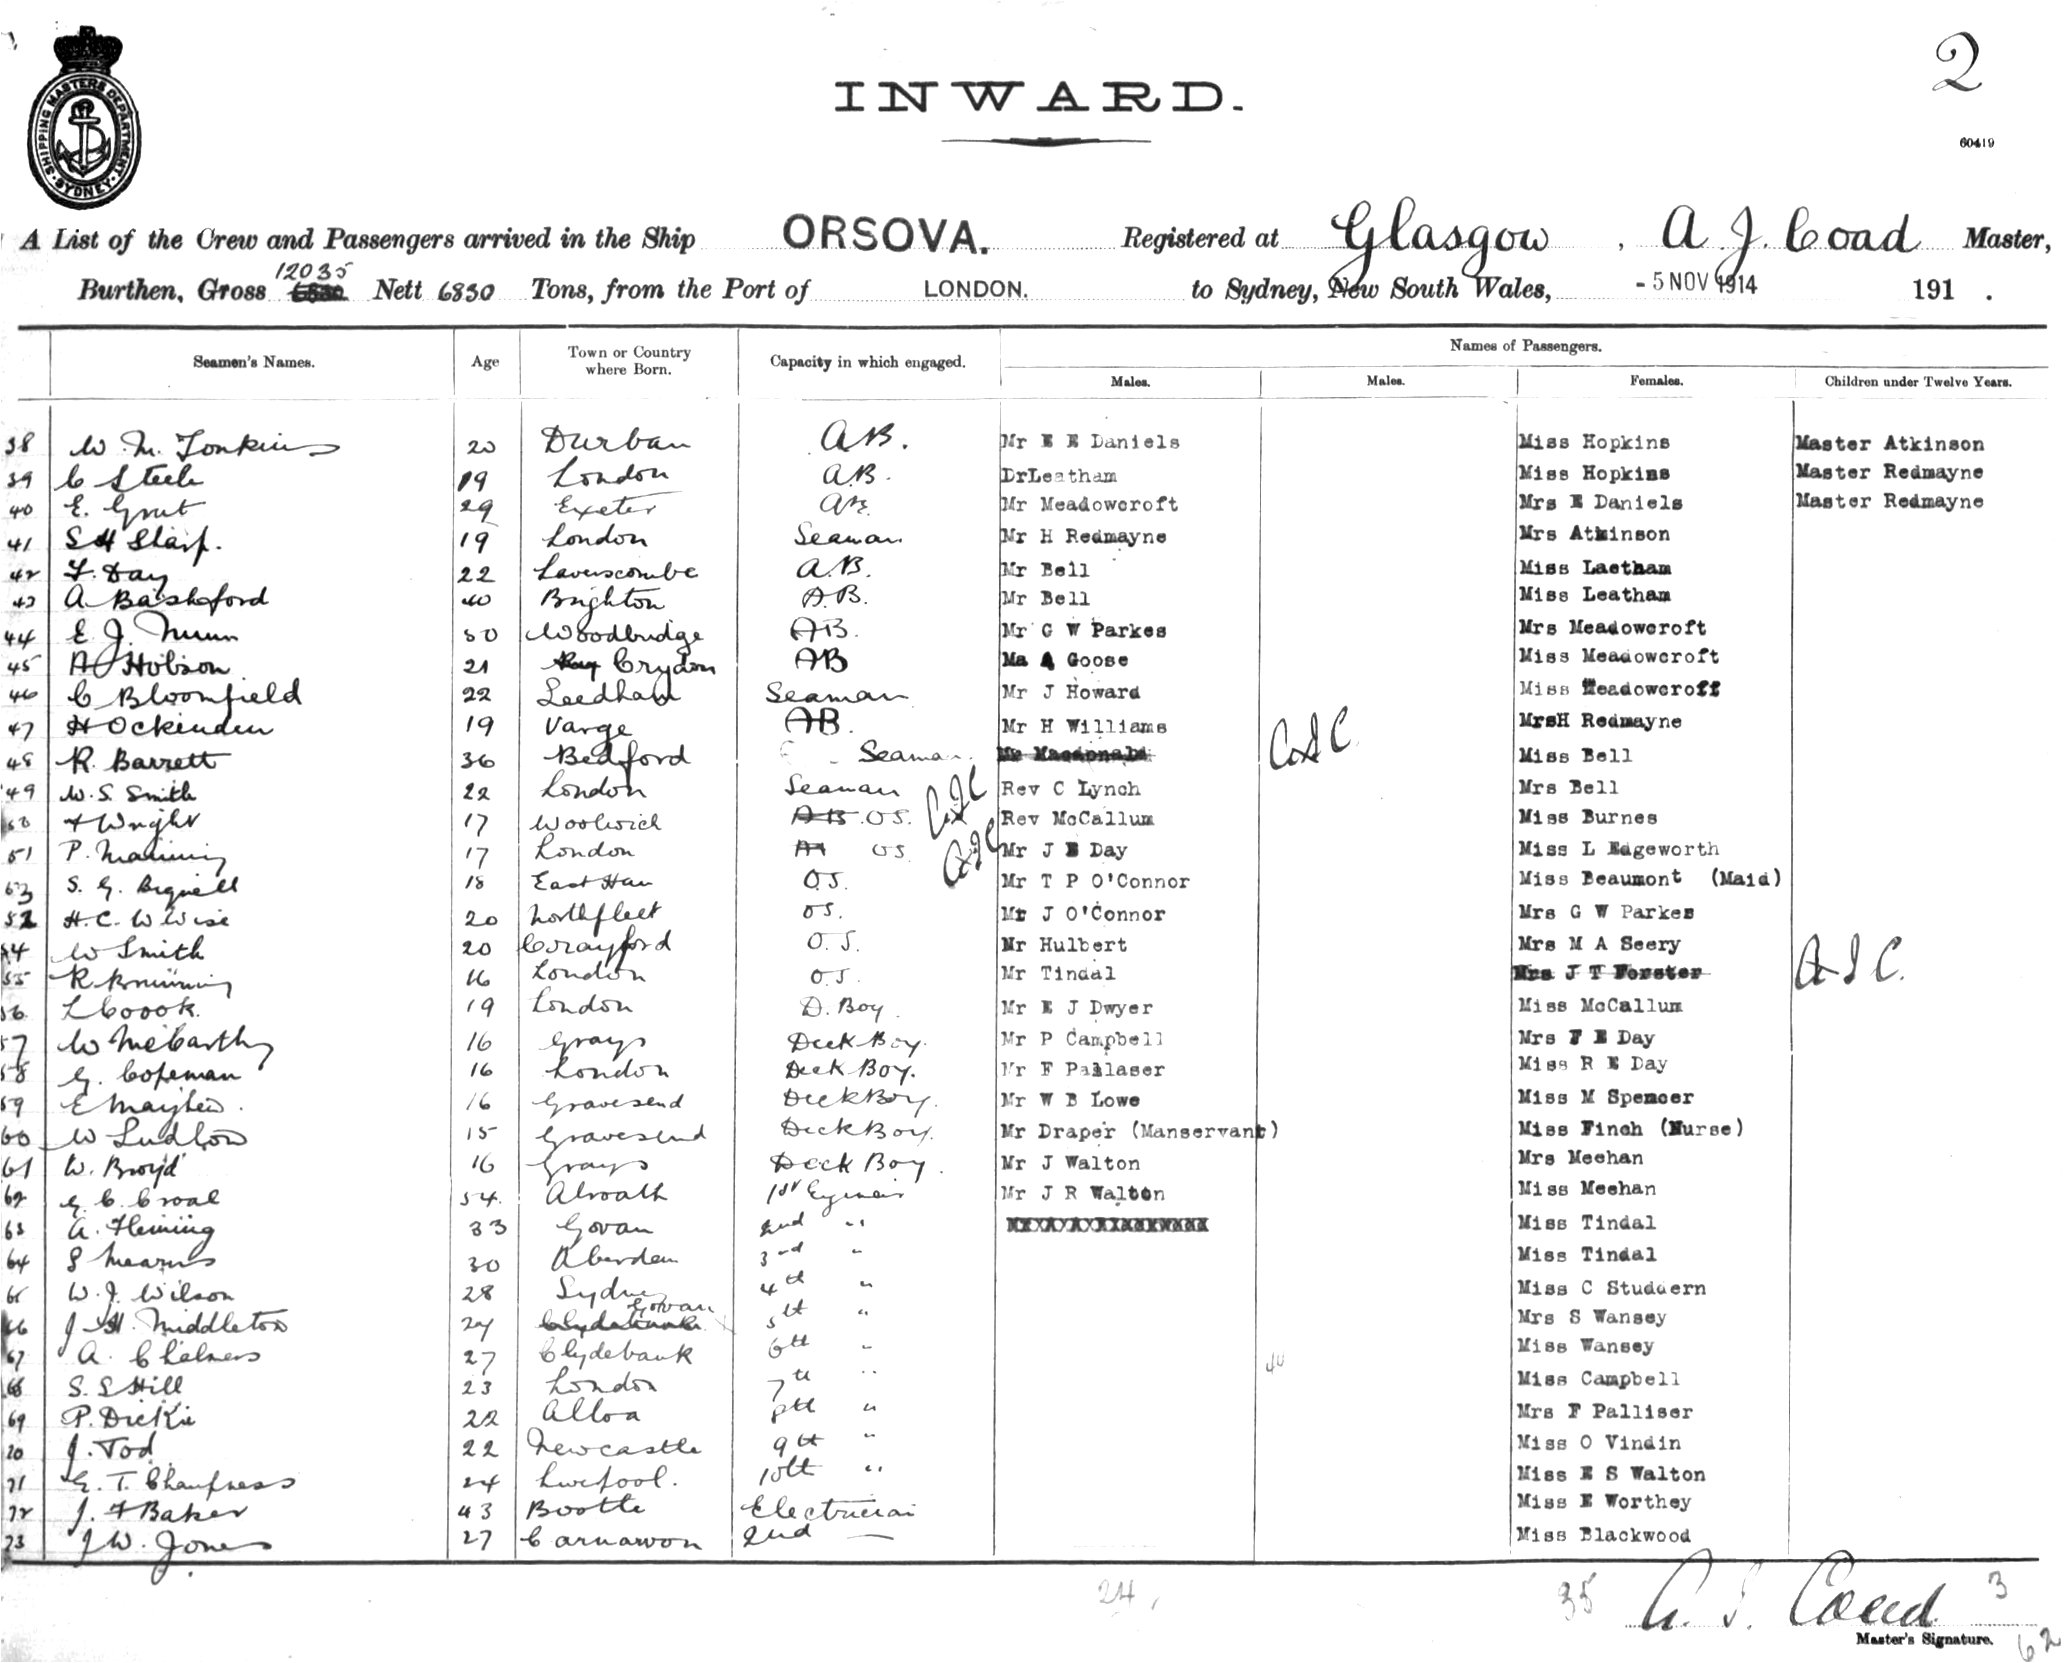 2
INWARD.
60419
SHIPPING MASTERS DEPARTMENT · SYDNEY ·
A List of the Crew and Passengers arrived in the Ship ORSOVA. Registered at Glasgow, A. J. Coad Master,
12035
Burthen, Gross 6830 Nett 6830 Tons, from the Port of LONDON. to Sydney, New South Wales, - 5 NOV 1914 191 .
Names of Passengers.
Seamen's Names. Age Town or Country where Born. Capacity in which engaged. Males. Males. Females. Children under Twelve Years.
38 W. M. Tonkins 20 Durban A.B. Mr E E Daniels Miss Hopkins Master Atkinson
39 C Steele 19 London A.B. DrLeatham Miss Hopkins Master Redmayne
40 E. Grut 29 Exeter AB. Mr Meadowcroft Mrs E Daniels Master Redmayne
41 S H Sharp. 19 London Seaman Mr H Redmayne Mrs Atkinson
42 F. Day 22 Laverscombe A.B. Mr Bell Miss Laetham
43 A Bashford 40 Brighton A.B. Mr Bell Miss Leatham
44 E. J. Nunn 50 Woodbridge AB. Mr G W Parkes Mrs Meadowcroft
45 A Hobson 21 Crydon AB Ma A Goose Miss Meadowcroft
46 C Bloomfield 22 Leedham Seaman Mr J Howard Miss Meadowcroff
47 H Ockenden 19 Varge AB. Mr H Williams MrsH Redmayne
48 R. Barrett 36 Bedford Seaman. Mr Macdonald AJC Miss Bell
49 W. S. Smith 22 London Seaman AJC Rev C Lynch Mrs Bell
50 Wright 17 Woolwich AB O.S. Rev McCallum Miss Burnes
51 P. Manning 17 London OS AJC Mr J E Day Miss L Edgeworth
53 S. G. Bignell 18 East Ham O.S. Mr T P O'Connor Miss Beaumont (Maid)
52 H. C. W Wise 20 Northfleet OS. Mr J O'Connor Mrs G W Parkes
54 W Smith 20 Crayford O.S. Mr Hulbert Mrs M A Seery
55 R 16 London O.S. Mr Tindal Mrs J T Forster AJC.
56 L Coook. 19 London D. Boy Mr E J Dwyer Miss McCallum
57 W McCarthy 16 Grays Deck Boy. Mr P Campbell Mrs F E Day
58 G. Copeman 16 London Deck Boy. Mr F Pallaser Miss R E Day
59 E Mayhew. 16 Gravesend Deck Boy. Mr W B Lowe Miss M Spencer
60 W Ludlow 15 Gravesend Deck Boy. Mr Draper (Manservant) Miss Finch (Nurse)
61 W. Broyd 16 Grays Deck Boy. Mr J Walton Mrs Meehan
62 G. C. Croal 54. 1st Engineer Mr J R Walton Miss Meehan
63 A. Fleming 33 Govan 2nd " Miss Tindal
64 S Mearns 30 Aberdeen 3rd " Miss Tindal
65 W. J. Wilson 28 Sydney 4th " Miss C Studdern
66 J. H. Middleton 27 Clydebank Govan 5th " Mrs S Wansey
67 A. Chalmers 27 Clydebank 6th " Miss Wansey
68 S. S Hill 23 London 7th " Miss Campbell
69 P. Dickie 22 Alloa 8th " Mrs F Palliser
70 J. Tod 22 Newcastle 9th " Miss O Vindin
71 G. T. Champness 24 Liverpool. 10th " Miss E S Walton
72 J. F Baker 43 Bootle Electrician Miss E Worthey
73 J W. Jones 27 Carnarvon 2nd — Miss Blackwood
24 35 A. J. Coad 3
Master's Signature. 62